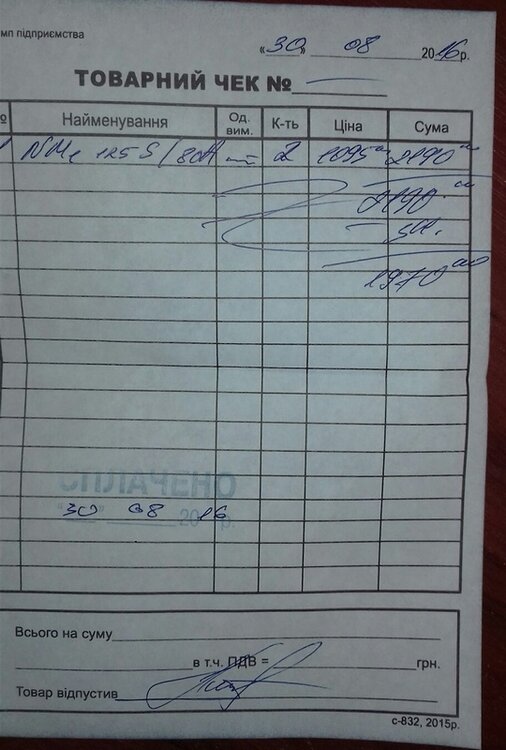 мп підприємства
«30» 08 2016р.
ТОВАРНИЙ ЧЕК №
№ Найменування Од. вим. К-ть Ціна Сума
1 125S/80A шт 2 1095 2190
2190
1970
СПЛАЧЕНО
30 08 2016 р.
Всього на суму
в т.ч. ПДВ = грн.
Товар відпустив
с-832, 2015р.